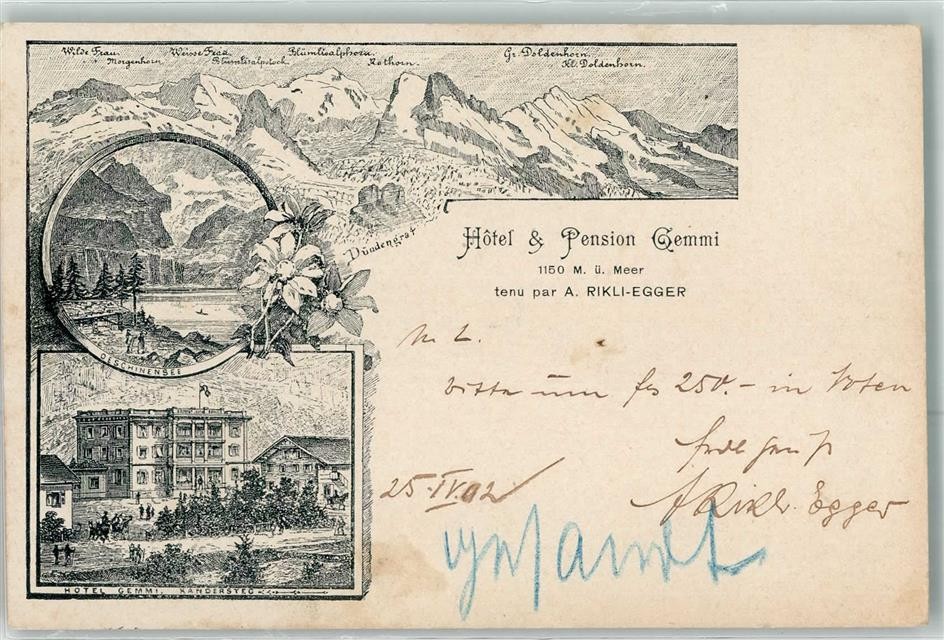 Wilde Frau. Weisse Frau Blümlisalphorn. Gr. Doldenhorn.
Morgenhorn Blümlisalpstock Rothorn. Kl. Doldenhorn.
Dündengrat
OESCHINENSEE
HOTEL GEMMI, KANDERSTEG
Hôtel & Pension Gemmi
1150 M. ü. Meer
tenu par A. RIKLI-EGGER
M. L.
bitte um frs 250.- in Noten
25. IV. 02
A Rikli-Egger
gesandt